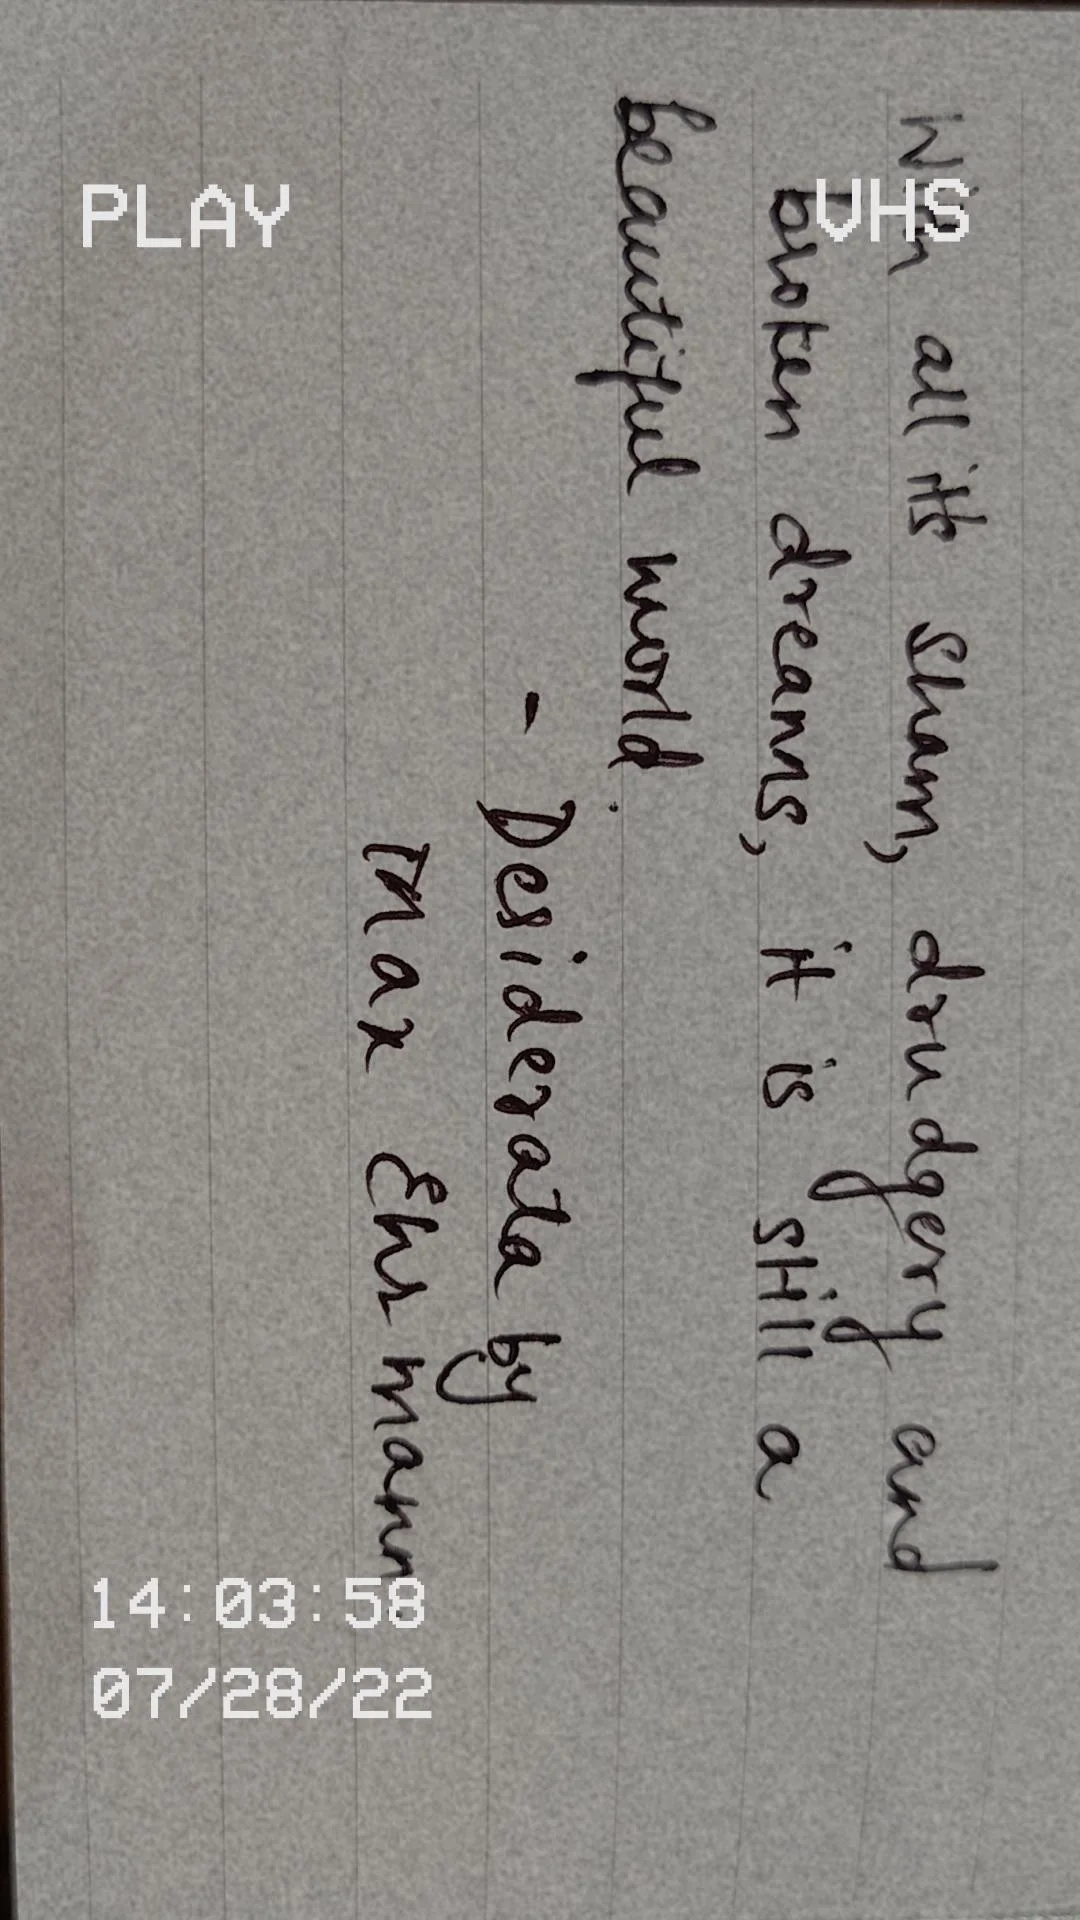 PLAY
VHS
With all its sham, drudgery and
broken dreams, it is still a
beautiful world.
- Desiderata by
Max Ehrmann.
14:03:58
07/28/22